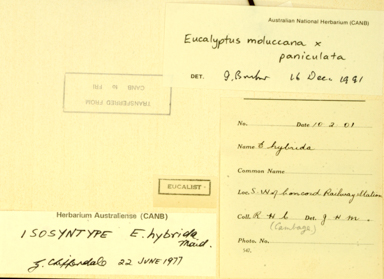 Australian National Herbarium (CANB)
Eucalyptus moluccana x
paniculata
DET. 16 Dec 1991
TRANSFERRED FROM
CANB to FRI
EUCALIST
No. Date 10.2.01
Name E hybrida
Common Name
Loc. S. W of Concord Railway Station
Coll. R H C Det. J H M.
(Cambage)
Photo. No.
Herbarium Australiense (CANB)
ISOSYNTYPE E. hybrida
Maid.
22 JUNE 1977